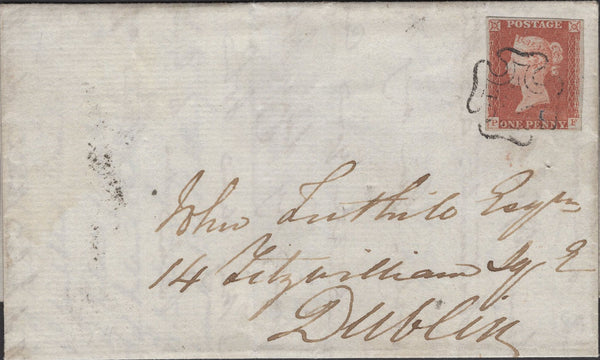 POSTAGE
P E
ONE PENNY
John Tuthile Esqre
14 Fitzwilliam Sq E
Dublin